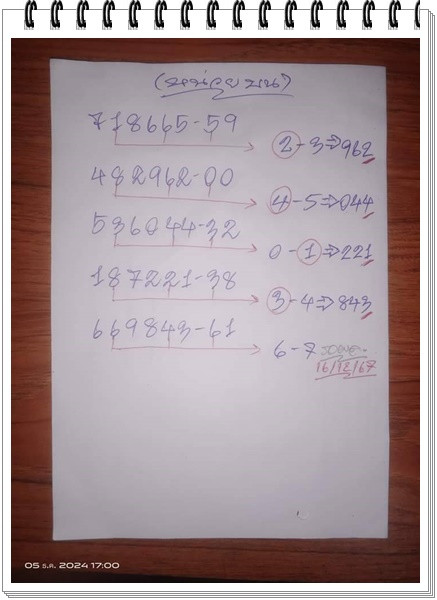 718665-59
2-3⇒962
482962-00
4-5⇒044
536044-32
0-1⇒221
187221-38
3-4⇒843
669843-61
6-7
16/12/67
05 ธ.ค. 2024 17:00